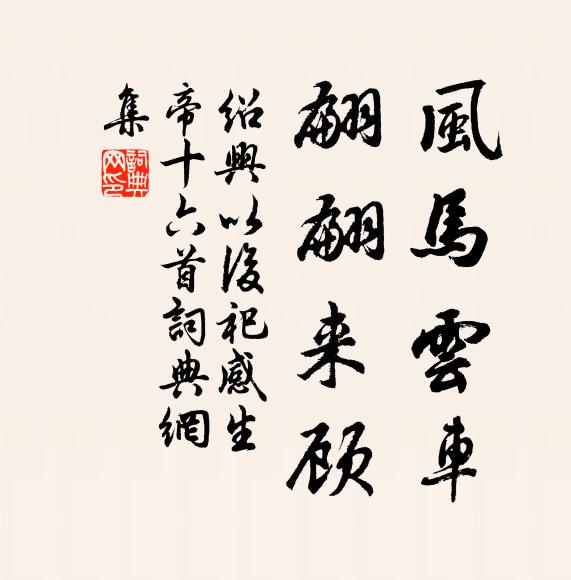 風馬雲車
翩翩来顾
紹興以後祀感生
帝十六首詞典網
集
詞典
网印